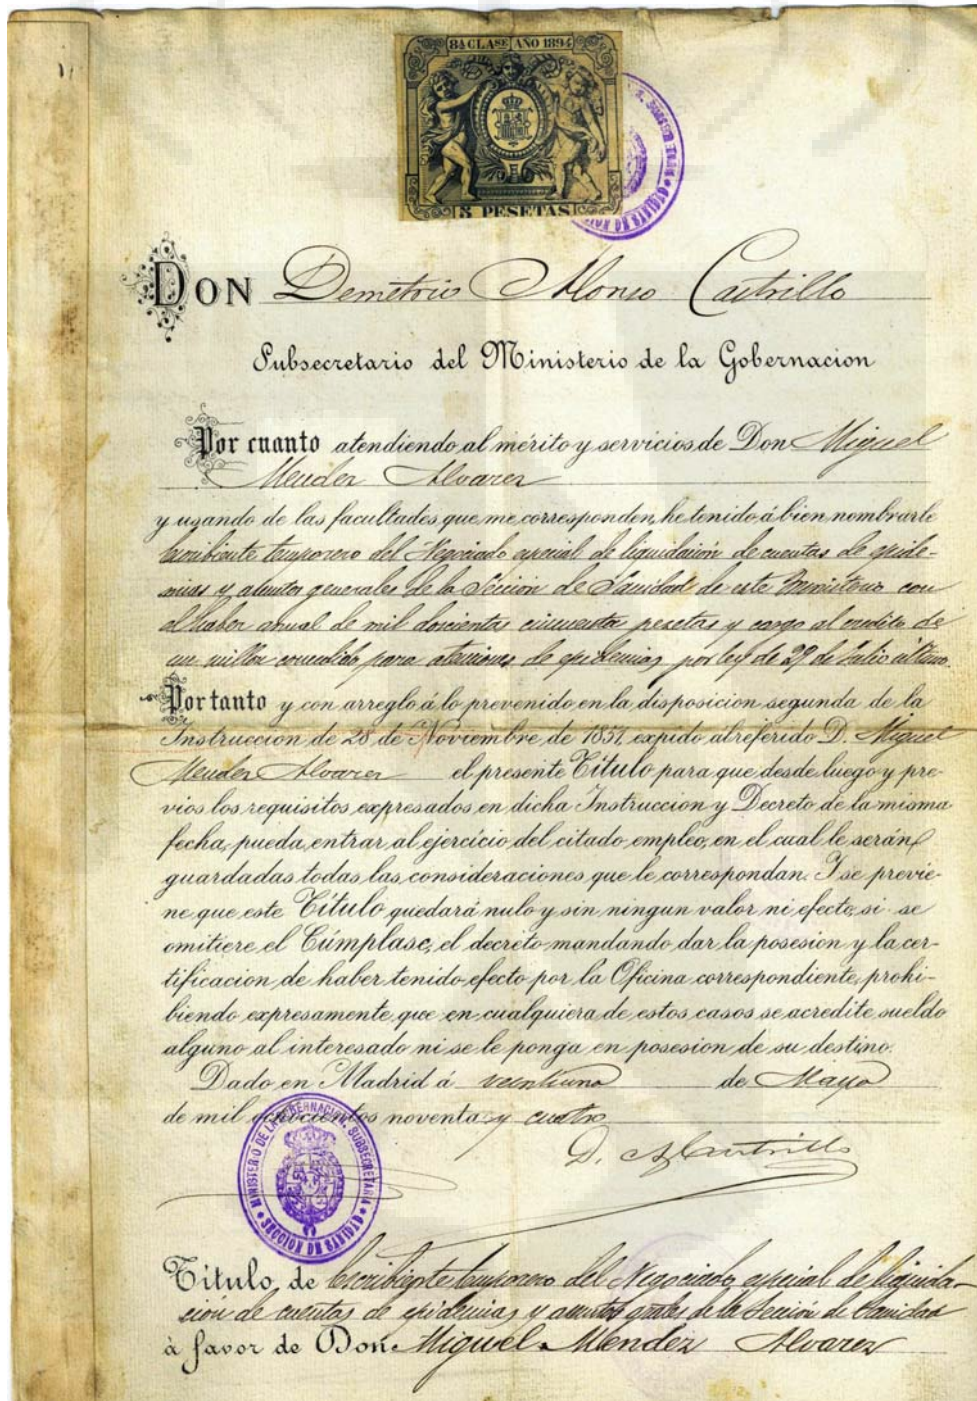 8ª CLASE AÑO 1894
5 PESETAS
DON Demetrio Alonso Castrillo
Subsecretario del Ministerio de la Gobernacion
Por cuanto atendiendo al mérito y servicios de Don Miguel
Mendez Alvarez
y usando de las facultades que me corresponden, he tenido á bien nombrarle
Escribiente temporero del Negociado especial de liquidación de cuentas de epide-
mias y asuntos generales de la Sección de Sanidad de este Ministerio con
el haber anual de mil doscientas cincuenta pesetas y cargo al credito de
un millon concedido para atenciones de epidemias por ley de 29 de Julio último.
Por tanto y con arreglo á lo prevenido en la disposicion segunda de la
Instruccion de 28 de Noviembre de 1851, expido al referido D. Miguel
Mendez Alvarez el presente Título para que desde luego y pre-
vios los requisitos expresados en dicha Instruccion y Decreto de la misma
fecha, pueda entrar al ejercicio del citado empleo, en el cual le serán
guardadas todas las consideraciones que le correspondan. Y se previe-
ne que este Título quedará nulo y sin ningun valor ni efecto, si se
omitiere el Cúmplase, el decreto mandando dar la posesion y la cer-
tificacion de haber tenido efecto por la Oficina correspondiente, prohi-
biendo expresamente que en cualquiera de estos casos se acredite sueldo
alguno al interesado ni se le ponga en posesion de su destino.
Dado en Madrid á veintiuno de Mayo
de mil ochocientos noventa y cuatro
D. A Castrillo
MINISTERIO DE LA GOBERNACION. SUBSECRETARIA
SECCION DE SANIDAD
Título de Escribiente temporero del Negociado especial de liquida-
ción de cuentas de epidemias y asuntos grales de la Sección de Sanidad
á favor de Don Miguel Mendez Alvarez